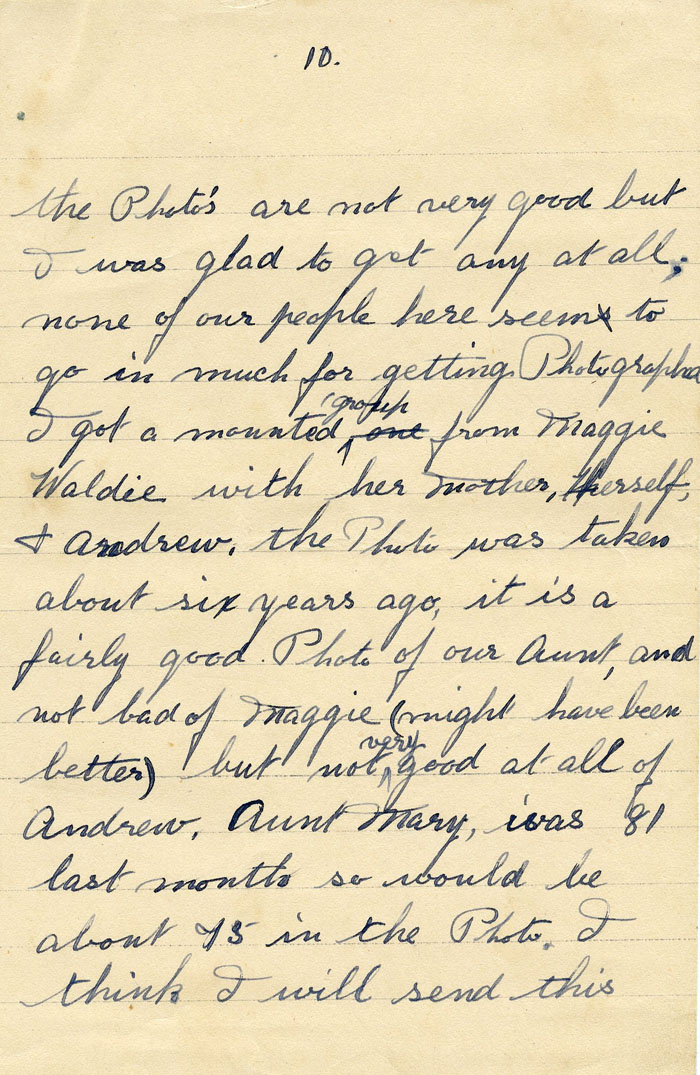 10.
the Photo's are not very good but
I was glad to get any at all;
none of our people here seem to
go in much for getting Photographed
I got a mounted group from Maggie
Waldie with her mother, herself,
& Andrew. the Photo was taken
about six years ago, it is a
fairly good Photo of our Aunt, and
not bad of Maggie (might have been
better) but not very good at all of
Andrew. Aunt Mary, was 81
last month so would be
about 75 in the Photo. I
think I will send this